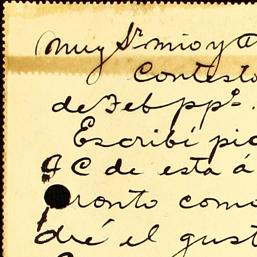 Muy Sr mio y a
Contesto
de Feb ppº.
Escribí pi
C de esta á
ronto como
dré el gust